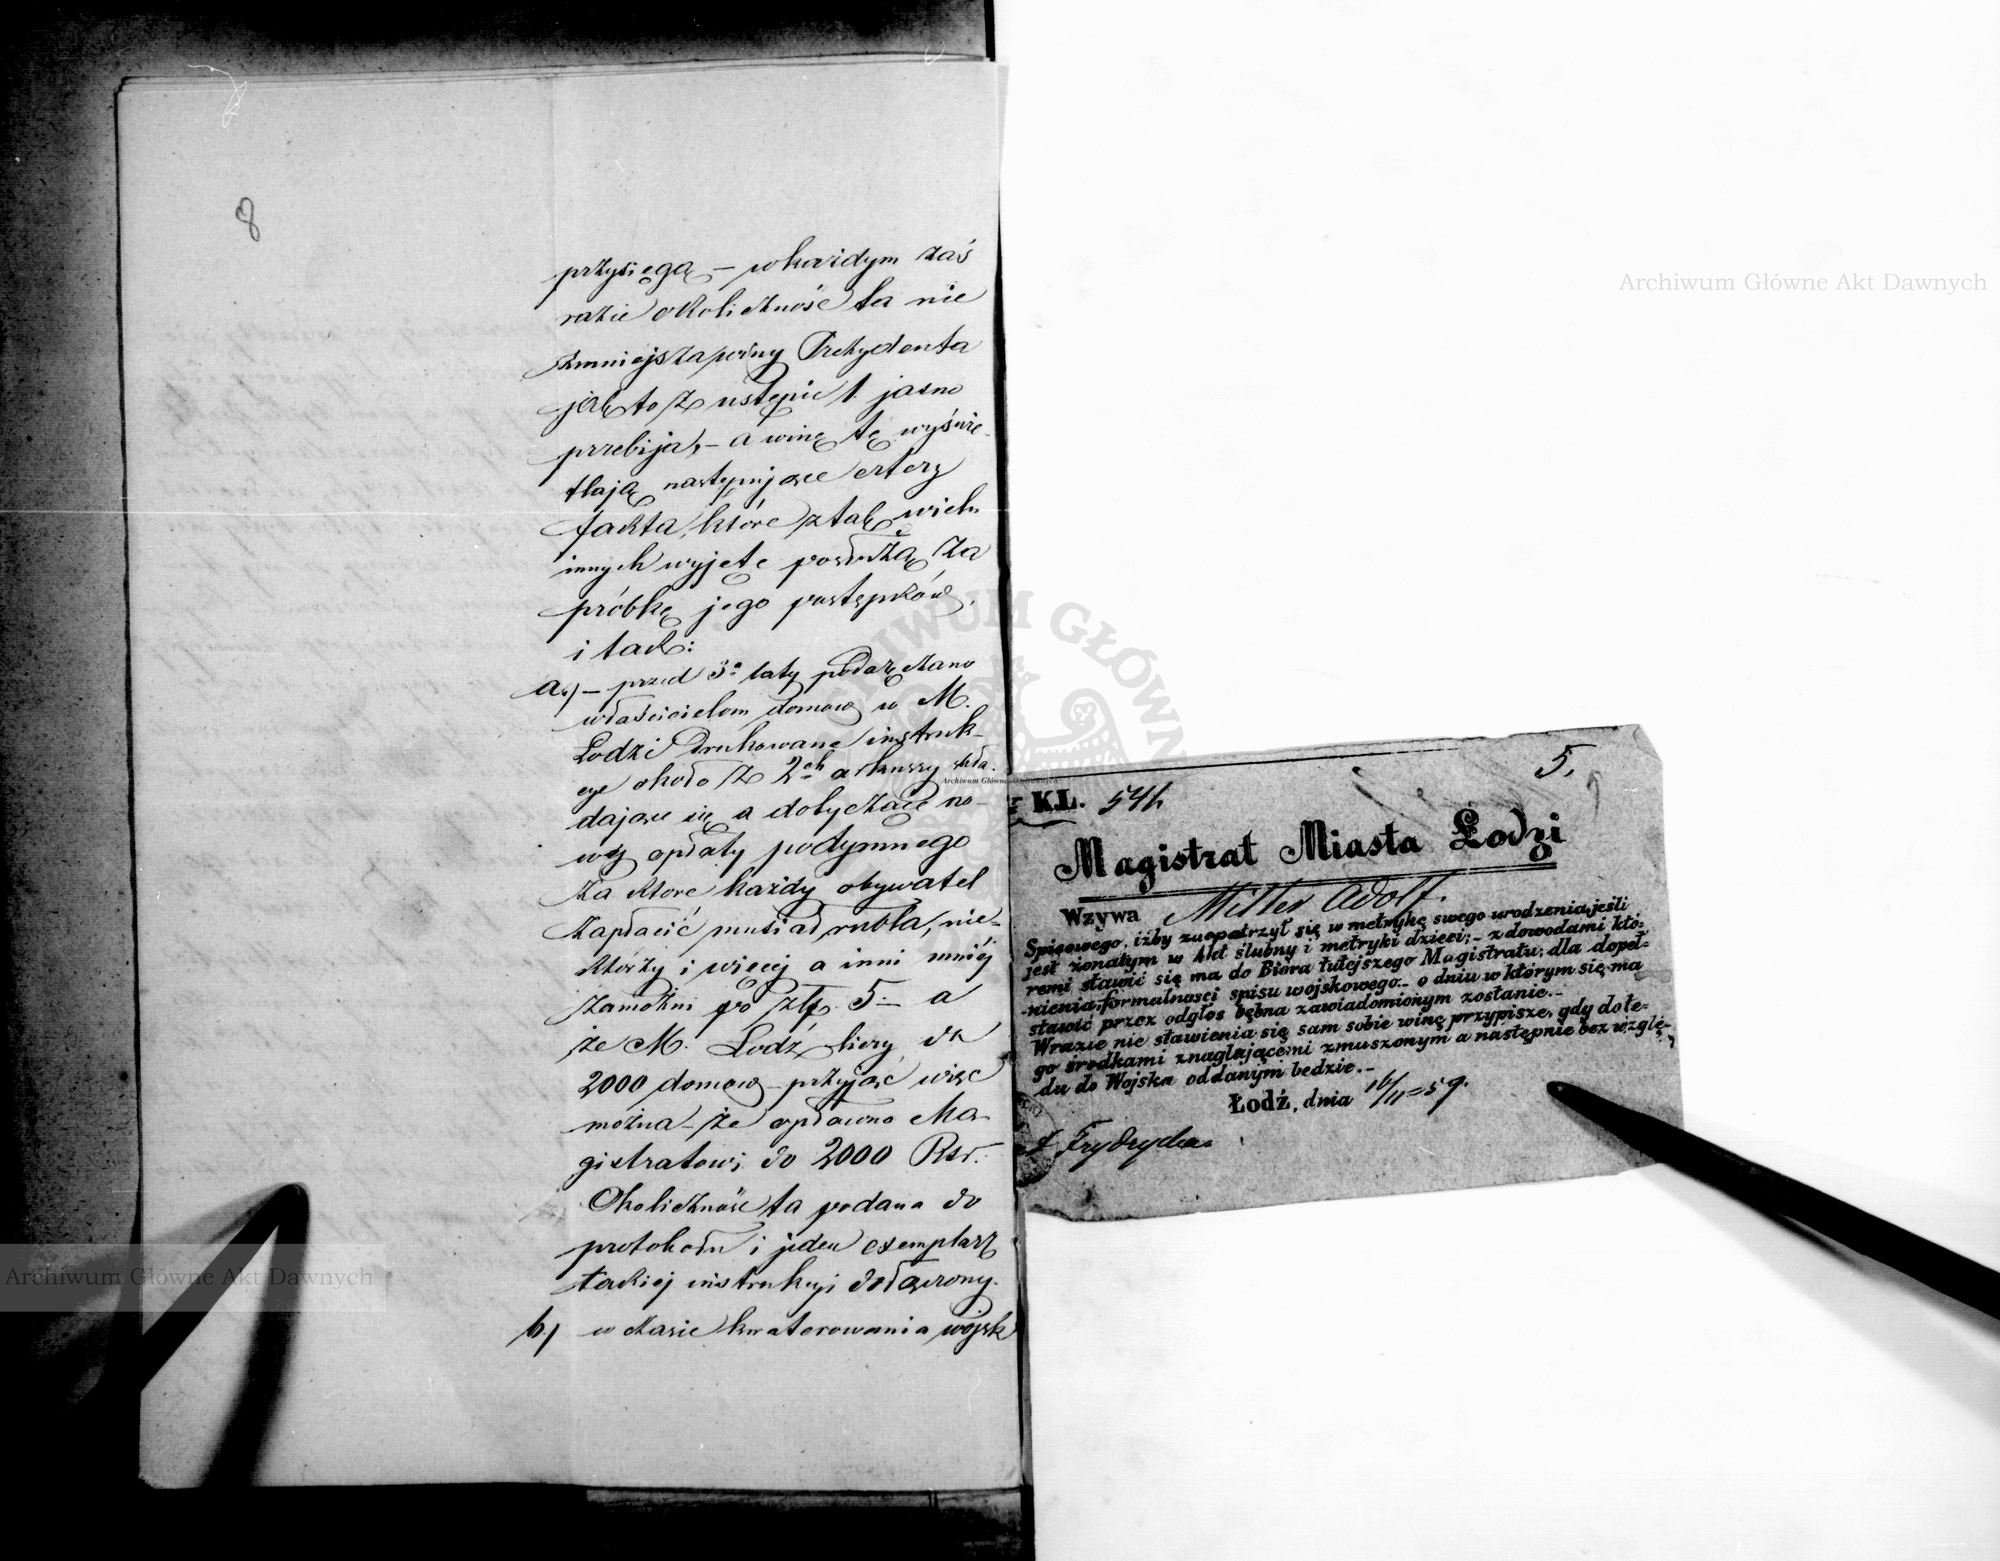 8
przysięgą – w każdym zaś
razie okoliczność ta nie
zmniejsza winy Prezydenta
jak to z ustępu 1 jasno
przebija, – a winę tę wyświe-
tlają następujące cztery
fakta, które z tak wielu
innych wyjęte posłużą za
próbkę jego postępków,
i tak:
a.) – przed 3a laty podoręczano
właścicielom domów w M.
Łodzi drukowane instruk-
cye około z 2ch arkuszy skła-
dające się a dotyczące no-
wéj opłaty podymnego
za które każdy obywatel
zapłacić musiał rubla, nie-
którzy i więcej a inni mniéj
zamożni po złp. 5.– a
że M. Łódź liczy do
2000 domów – przyjąć więc
można – że opłacono Ma-
gistratowi do 2000 Rsr.
Okoliczność ta podana do
protokołu i jeden exemplarz
takiej instrukcyi dołączony.
b.) w czasie kwaterowania wojsk
5.
KL. 541.
Magistrat Miasta Łodzi
Wzywa Miller Adolf.
Spisowego, iżby zaopatrzył się w metrykę swego urodzenia, jeśli
jest żonatym w Akt ślubny i metryki dzieci; – z dowodami któ-
remi stawić się ma do Bióra tutejszego Magistratu, dla dopeł-
-nienia formalności spisu wojskowego – o dniu w którym się ma
stawić przez odgłos bębna zawiadomionym zostanie. –
Wrazie nie stawienia się sam sobie winę przypisze, gdy do te-
go środkami znaglającemi zmuszonym a następnie bez wzglę-
du do Wojska oddanym bedzie. –
Łodź, dnia 16/11 59.
Frydrych
Archiwum Główne Akt Dawnych
Archiwum Główne Akt Dawnych
Archiwum Główne Akt Dawnych